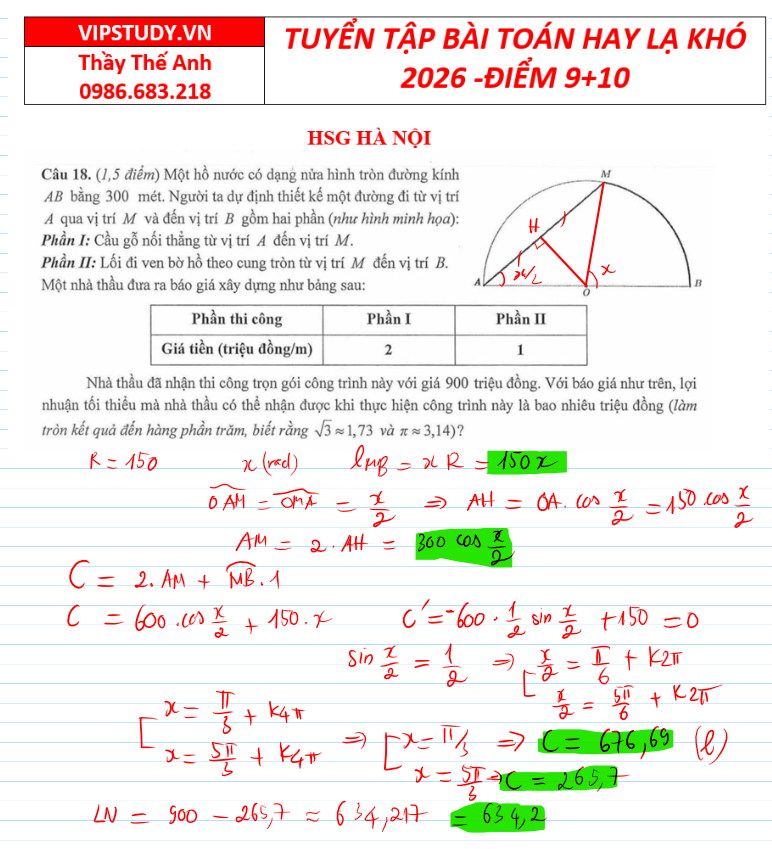 VIPSTUDY.VN
Thầy Thế Anh
0986.683.218
TUYỂN TẬP BÀI TOÁN HAY LẠ KHÓ
2026 -ĐIỂM 9+10
HSG HÀ NỘI
Câu 18. (1,5 điểm) Một hồ nước có dạng nửa hình tròn đường kính
AB bằng 300 mét. Người ta dự định thiết kế một đường đi từ vị trí
A qua vị trí M và đến vị trí B gồm hai phần (như hình minh họa):
Phần I: Cầu gỗ nối thẳng từ vị trí A đến vị trí M.
Phần II: Lối đi ven bờ hồ theo cung tròn từ vị trí M đến vị trí B.
Một nhà thầu đưa ra báo giá xây dựng như bảng sau:
M
H
A
x/2
O
x
B
Phần thi công Phần I Phần II
Giá tiền (triệu đồng/m) 2 1
Nhà thầu đã nhận thi công trọn gói công trình này với giá 900 triệu đồng. Với báo giá như trên, lợi
nhuận tối thiểu mà nhà thầu có thể nhận được khi thực hiện công trình này là bao nhiêu triệu đồng (làm
tròn kết quả đến hàng phần trăm, biết rằng √3 ≈ 1,73 và π ≈ 3,14)?
R = 150 x (rad) lMB = x R = 150 x
OAM = OMA = x/2 ⇒ AH = OA. cos x/2 = 150 cos x/2
AM = 2. AH = 300 cos x/2
C = 2. AM + MB. 1
C = 600. cos x/2 + 150. x C' = -600. 1/2 sin x/2 + 150 = 0
sin x/2 = 1/2 ⇒ [ x/2 = π/6 + k2π
x/2 = 5π/6 + k2π
[ x = π/3 + k4π
x = 5π/3 + k4π ⇒ [ x = π/3 ⇒ C = 676,69 (l)
x = 5π/3 → C = 265,7
LN = 900 - 265,7 ≈ 634,217 = 634,2